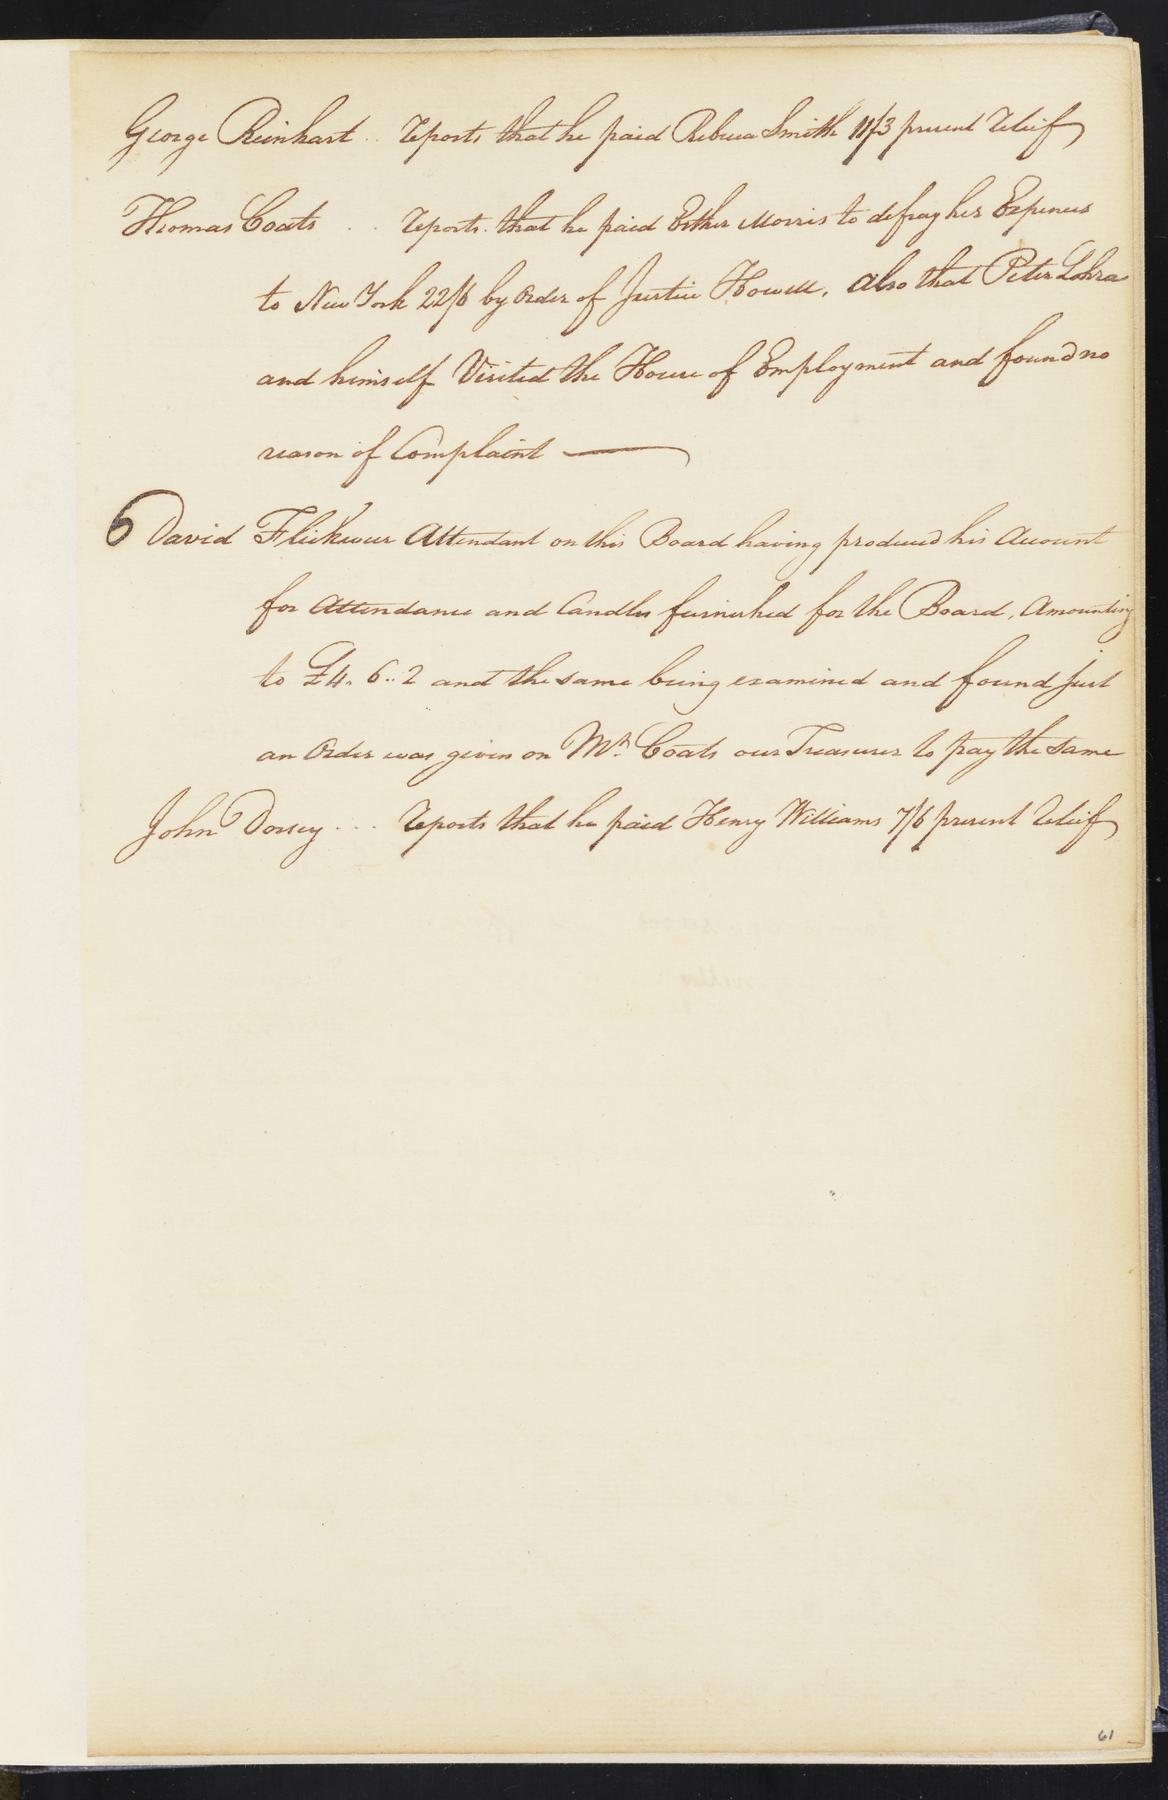 George Reinhart .. reports that he paid Rebecca Smith 11/3 present releif
Thomas Coats . . reports that he paid Esther Morris to defray her Expences
to New York 22/6 by Order of Justice Howell, also that Peter Lohra
and himself Visited the House of Employment and found no
reason of Complaint —
6 David Flickweer Attendant on this Board having produced his Account
for Attendance and Candles furnished for the Board, Amounting
to £4. 6.. 2 and the same being examined and found just
an Order was given on Mr. Coats our Treasurer to pay the same
John Dorsey ... reports that he paid Henry Williams 7/6 present releif
61